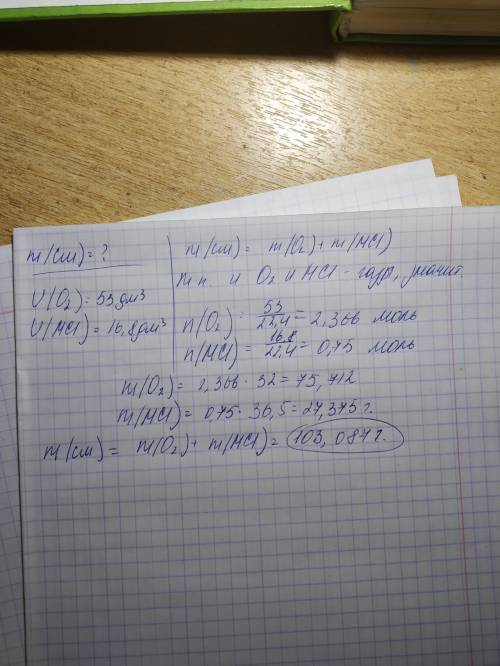 m(см) = ?
V(O₂) = 53 дм³
V(HCl) = 16,8 дм³
m(см) = m(O₂) + m(HCl)
т.к. и O₂ и HCl - газы, значит
n(O₂) = 53/22,4 = 2,366 моль
n(HCl) = 16,8/22,4 = 0,75 моль
m(O₂) = 2,366 · 32 = 75,712
m(HCl) = 0,75 · 36,5 = 27,375 г.
m(см) = m(O₂) + m(HCl) = 103,087 г.